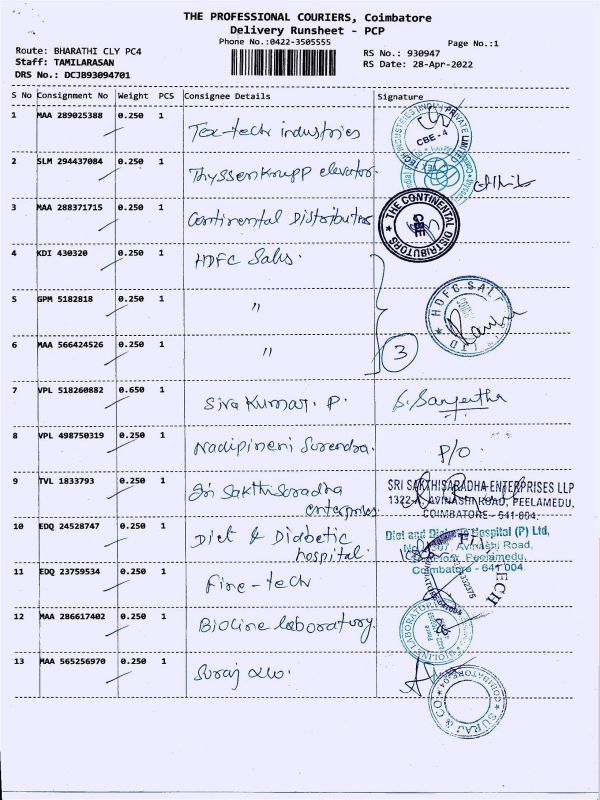 THE PROFESSIONAL COURIERS, Coimbatore
Delivery Runsheet - PCP
Phone No.:0422-3505555
Page No.:1
Route: BHARATHI CLY PC4
RS No.: 930947
Staff: TAMILARASAN
RS Date: 28-Apr-2022
DRS No.: DCJB93094701
S No Consignment No Weight PCS Consignee Details Signature
1 MAA 289025388 0.250 1 Tex-tech industries
CBE - 4
2 SLM 294437084 0.250 1 ThyssenKrupp elevator.
3 MAA 288371715 0.250 1 Continental Distributors
THE CONTINENTAL DISTRIBUTORS
CBE
4 KDI 430320 0.250 1 HDFC Sales.
5 GPM 5182818 0.250 1 "
6 MAA 566424526 0.250 1 "
3
7 VPL 518260882 0.650 1 Siva Kumar. P. S. Sangeetha
8 VPL 498750319 0.250 1 Nadipineni Surendra. P/O
9 TVL 1833793 0.250 1 Sri Sakthisaradha enterprises.
SRI SAKTHISARADHA ENTERPRISES LLP
1322-A, AVINASHI ROAD, PEELAMEDU,
COIMBATORE - 641 004.
10 EDQ 24528747 0.250 1 Diet & Diabetic hospital.
Diet and Diabetes Hospital (P) Ltd,
Avinashi Road,
Peelamedu,
Coimbatore - 641 004
11 EDQ 23759534 0.250 1 Fine-tech
12 MAA 286617402 0.250 1 Bioline laboratory.
BIOLINE LABORATORY
13 MAA 565256970 0.250 1 Suraj &co.
SURAJ & CO